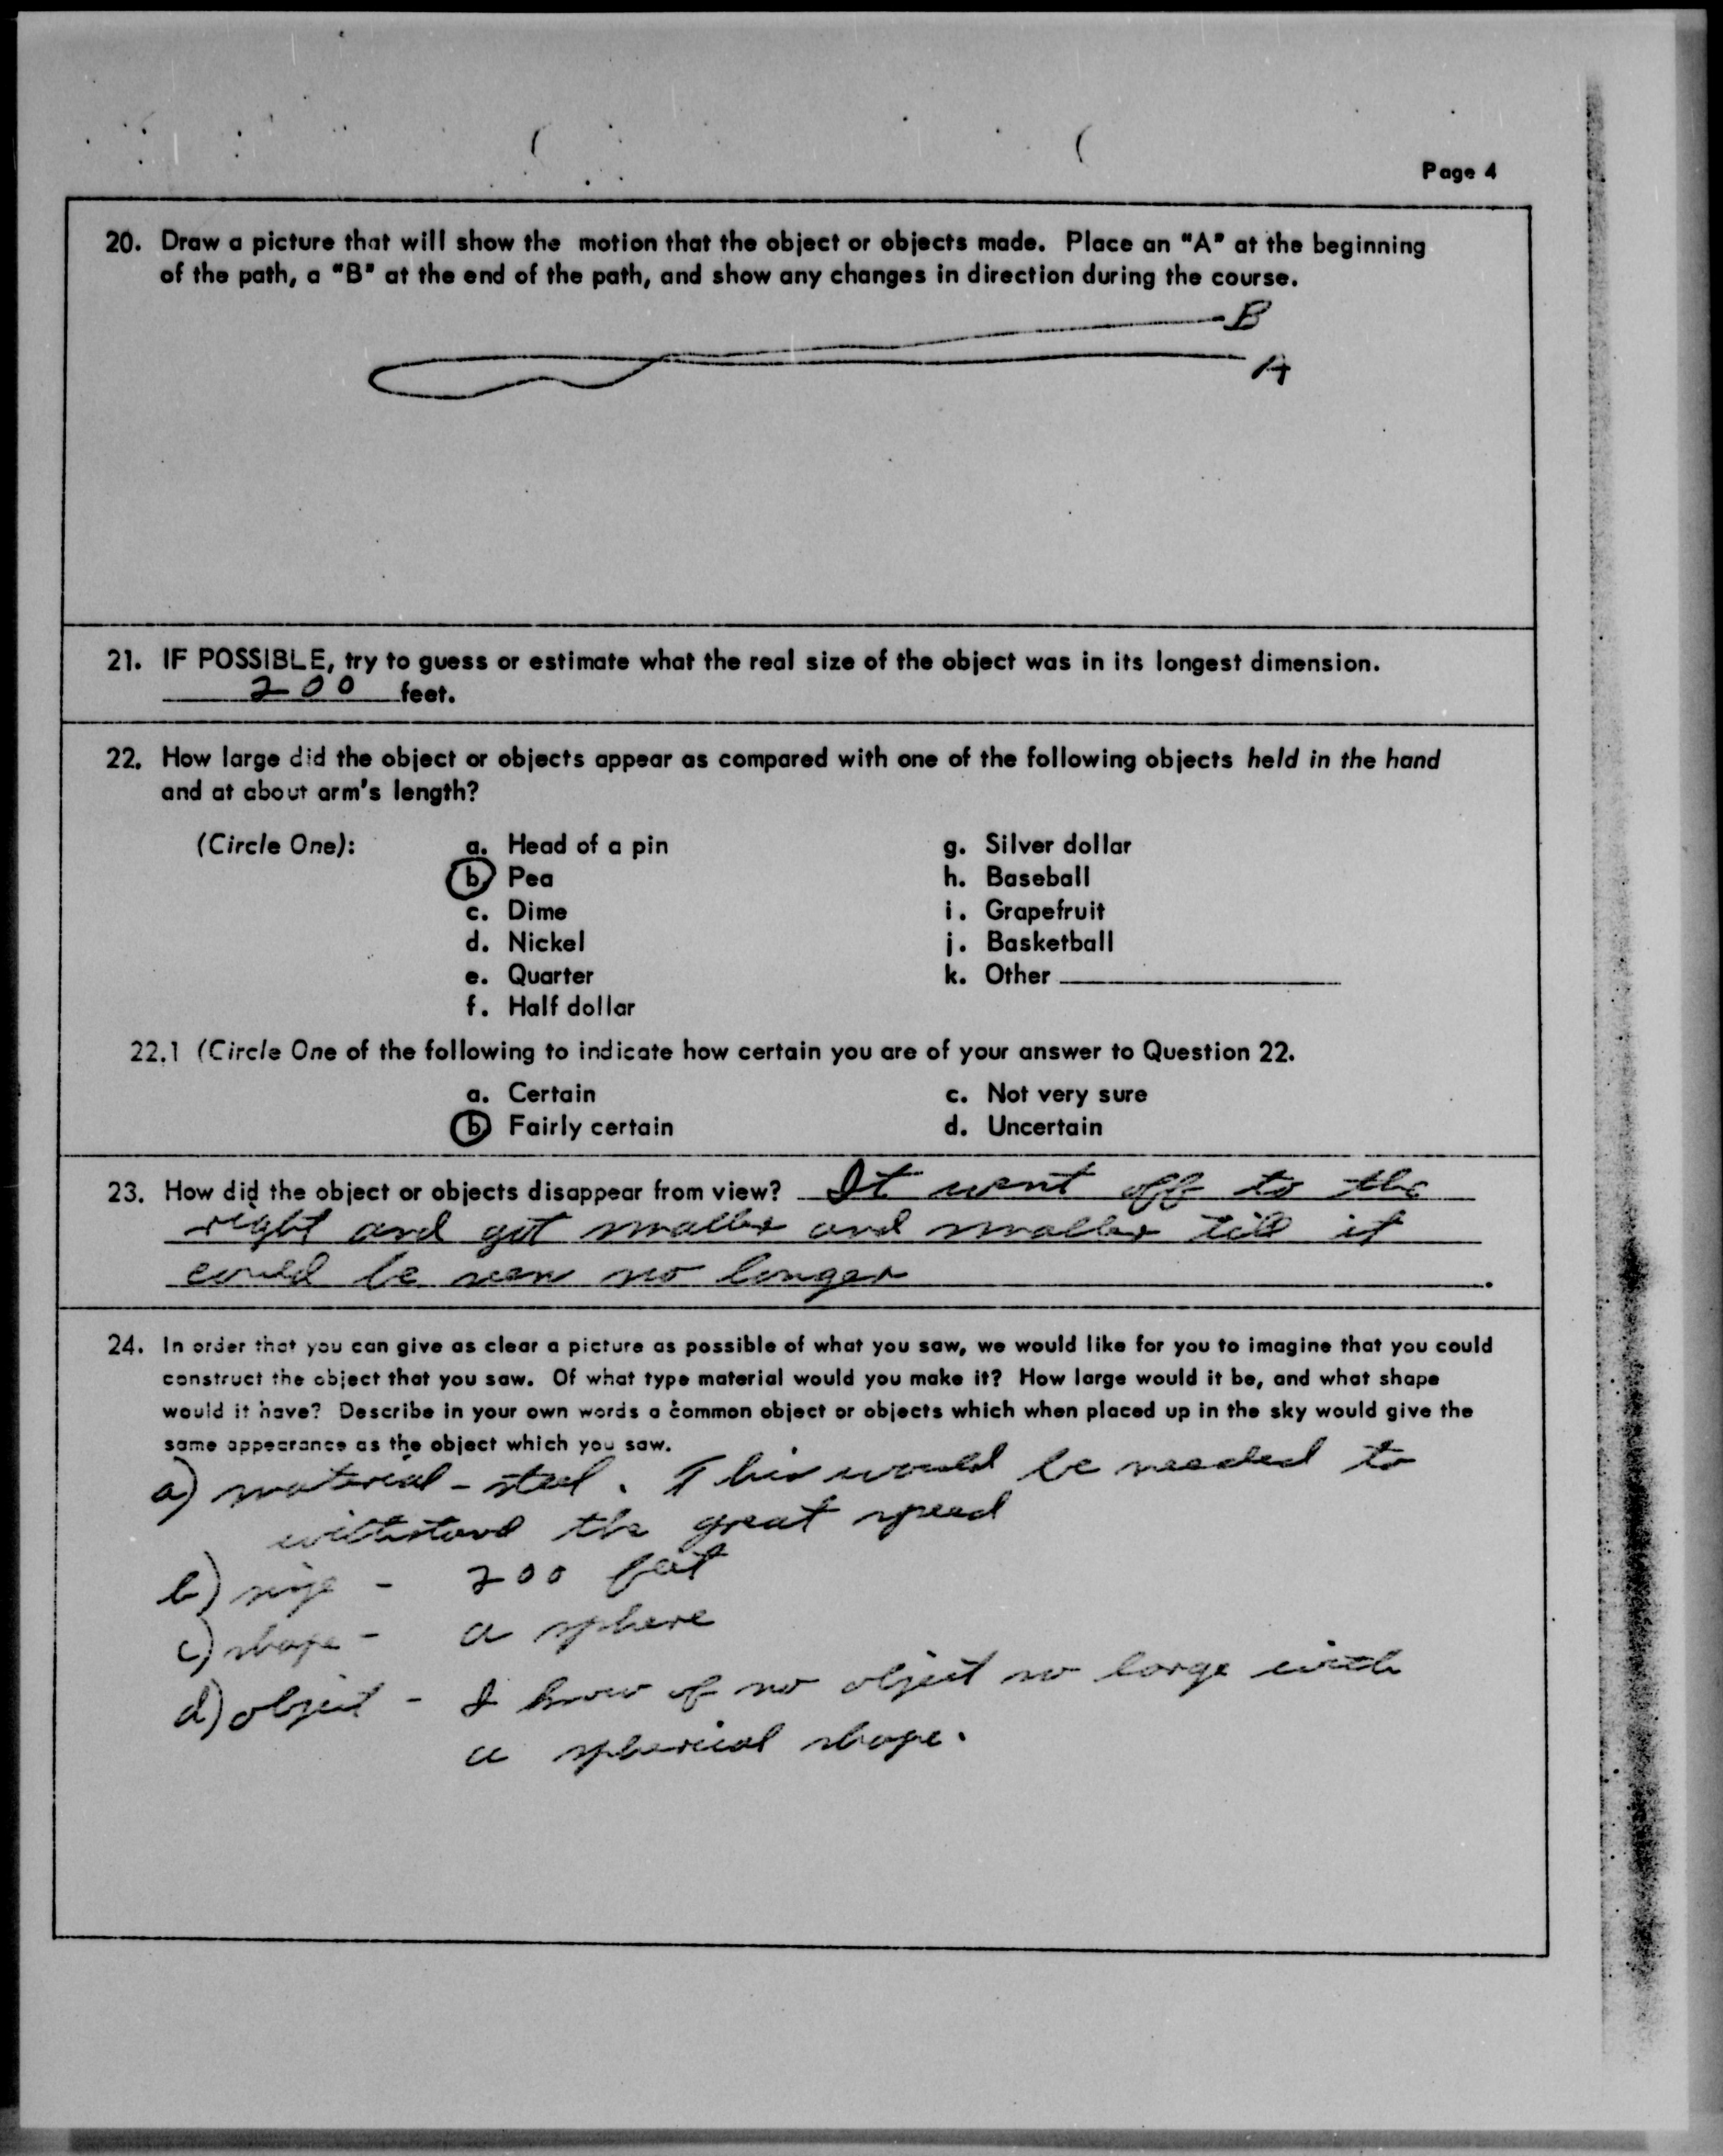 Page 4
20. Draw a picture that will show the motion that the object or objects made. Place an "A" at the beginning
of the path, a "B" at the end of the path, and show any changes in direction during the course.
B
A
21. IF POSSIBLE, try to guess or estimate what the real size of the object was in its longest dimension.
200 feet.
22. How large did the object or objects appear as compared with one of the following objects held in the hand
and at about arm's length?
(Circle One):
a. Head of a pin
b. Pea
c. Dime
d. Nickel
e. Quarter
f. Half dollar
g. Silver dollar
h. Baseball
i. Grapefruit
j. Basketball
k. Other
22.1 (Circle One of the following to indicate how certain you are of your answer to Question 22.
a. Certain
b. Fairly certain
c. Not very sure
d. Uncertain
23. How did the object or objects disappear from view? It went off to the
right and got smaller and smaller till it
could be seen no longer.
24. In order that you can give as clear a picture as possible of what you saw, we would like for you to imagine that you could
construct the object that you saw. Of what type material would you make it? How large would it be, and what shape
would it have? Describe in your own words a common object or objects which when placed up in the sky would give the
same appearance as the object which you saw.
a) material - steel. This would be needed to
withstand the great speed
b) size - 200 feet
c) shape - a sphere
d) object - I know of no object so large with
a spherical shape.